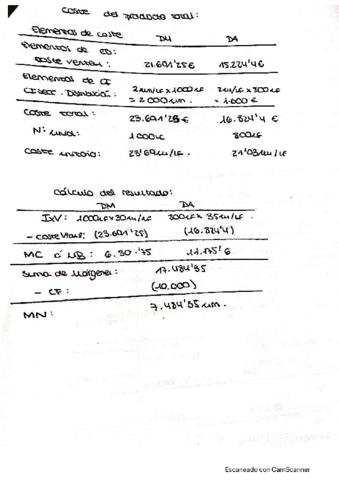 Coste del producto total:
Elementos de coste DM DA
Elementos de CD:
Coste ventas: 21.691'25€ 15.224'4€
Elementos de CI
CI secc. Distribución: 2um/uf x 1000uf 2um/uf x 800uf
= 2000um. = 1.600 €
Coste total: 23.691'25€ 16.824'4 €
Nº unid: 1000uf 800uf
Coste unitario: 23'69um/uf 21'03um/uf
Cálculo del resultado:
DM DA
IxV: 1000uf x 30um/uf 800uf x 35um/uf.
- Coste Vtas: (23.691'25) (16.824'4)
MC ó MB: 6.30.'75 11.175'6
Suma de Márgenes: 17.484'35
- CF: (10.000)
MN: 7.484'35 um.
Escaneado con CamScanner